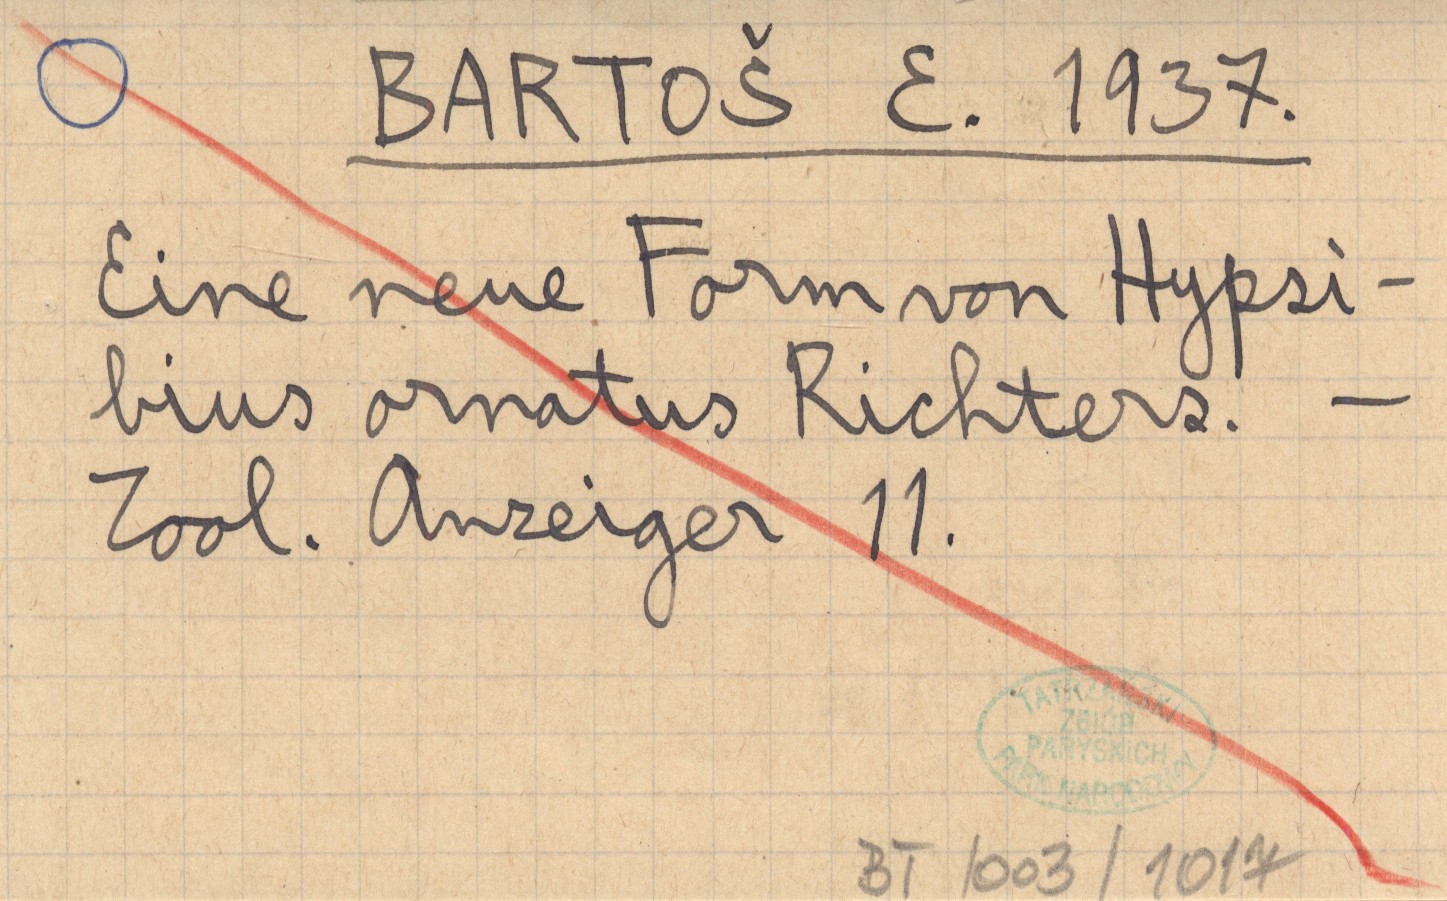 BARTOŠ E. 1937.
Eine neue Form von Hypsi-
bius ornatus Richters. –
Zool. Anzeiger 11.
TATRZAŃSKI
ZBIÓR
PARYSKICH
PARK NARODOWY
BT /003/1017